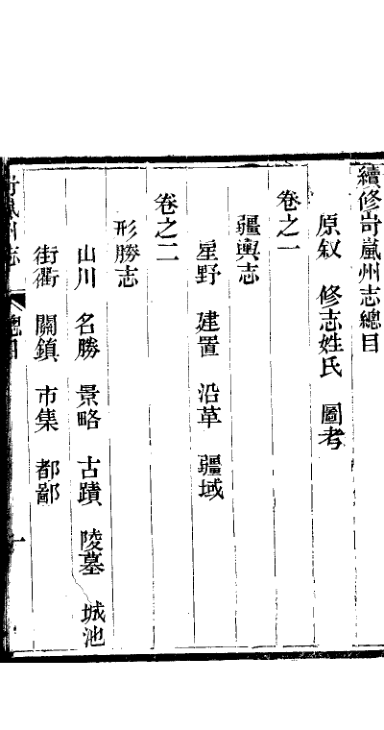 續修岢嵐州志總目
原叙 修志姓氏 圖考
卷之一
疆輿志
星野 建置 沿革 疆域
卷之二
形勝志
山川 名勝 景略 古蹟 陵墓 城池
街衢 關鎮 市集 都鄙
岢嵐州志 總目 一